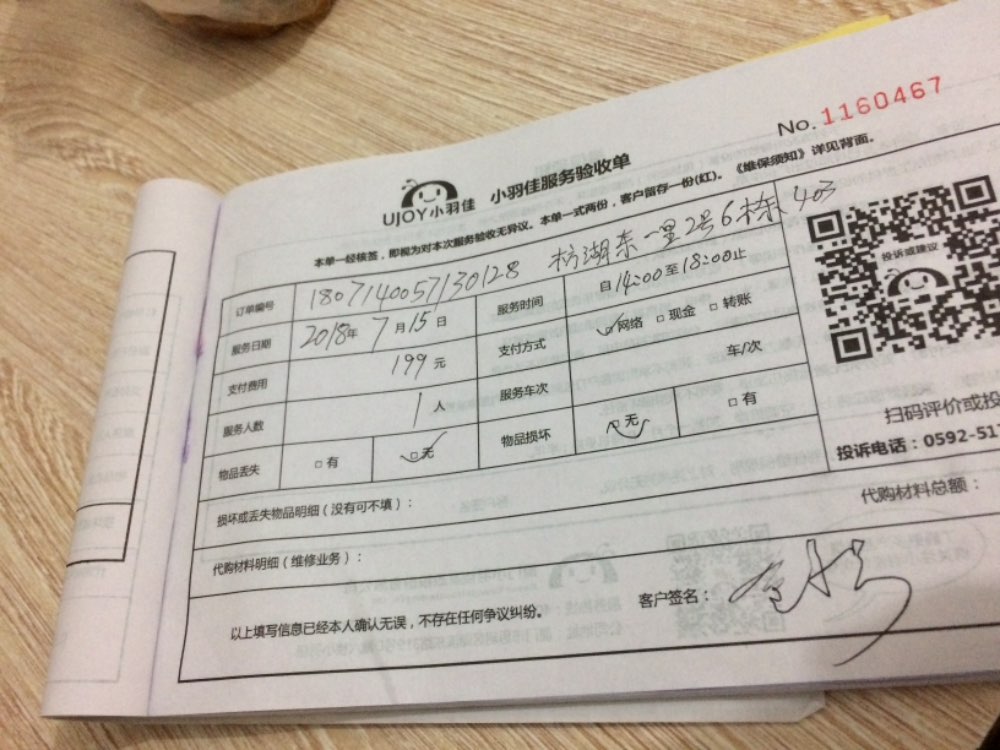 No. 1160467
UJOY小羽佳 小羽佳服务验收单
本单一经核签，即视为对本次服务验收无异议。本单一式两份，客户留存一份(红)。《维保须知》详见背面。
订单编号 1807140057130128 枋湖东一里2号6栋403
服务日期 2018年7月15日 服务时间 自14:00至18:00止
支付费用 199元 支付方式 □网络 □现金 □转账
服务人数 1人 服务车次 车/次
物品丢失 □有 □无 物品损坏 □无 □有
投诉或建议
扫码评价或投
投诉电话：0592-511
损坏或丢失物品明细（没有可不填）：
代购材料明细（维修业务）： 代购材料总额：
以上填写信息已经本人确认无误，不存在任何争议纠纷。 客户签名：